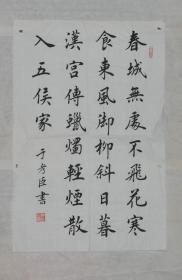 春城無處不飛花寒
食東風御柳斜日暮
漢宮傳蠟燭輕煙散
入五侯家
于考臣書